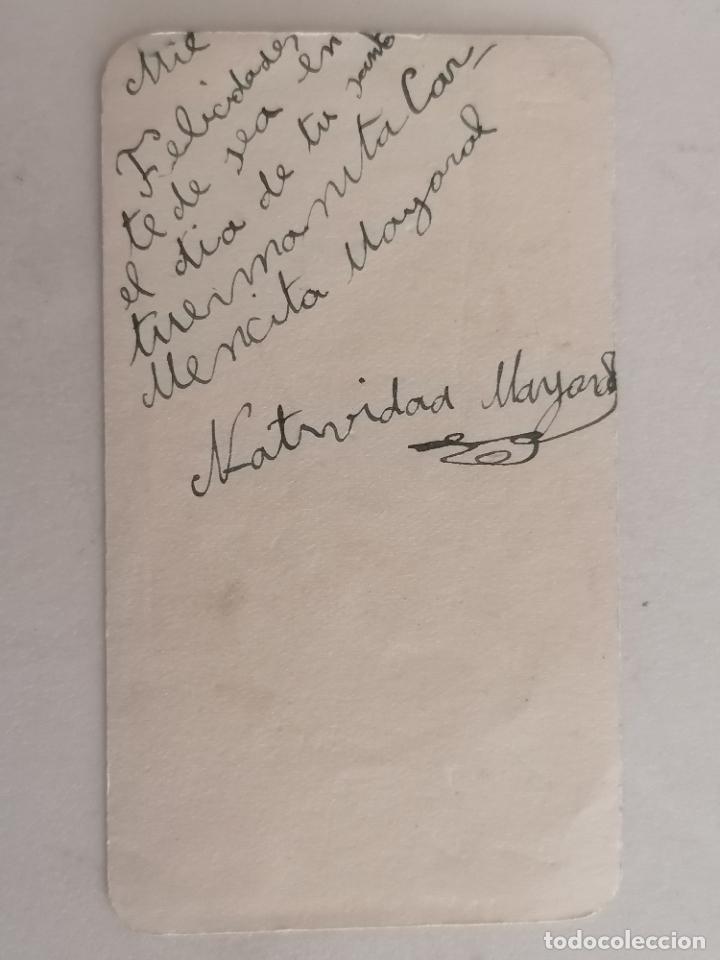 Mil
Felicidades
te de sea en
el dia de tu santo
tuermanita Car-
Mencita Mayoral
Natividad Mayoral
todocoleccion